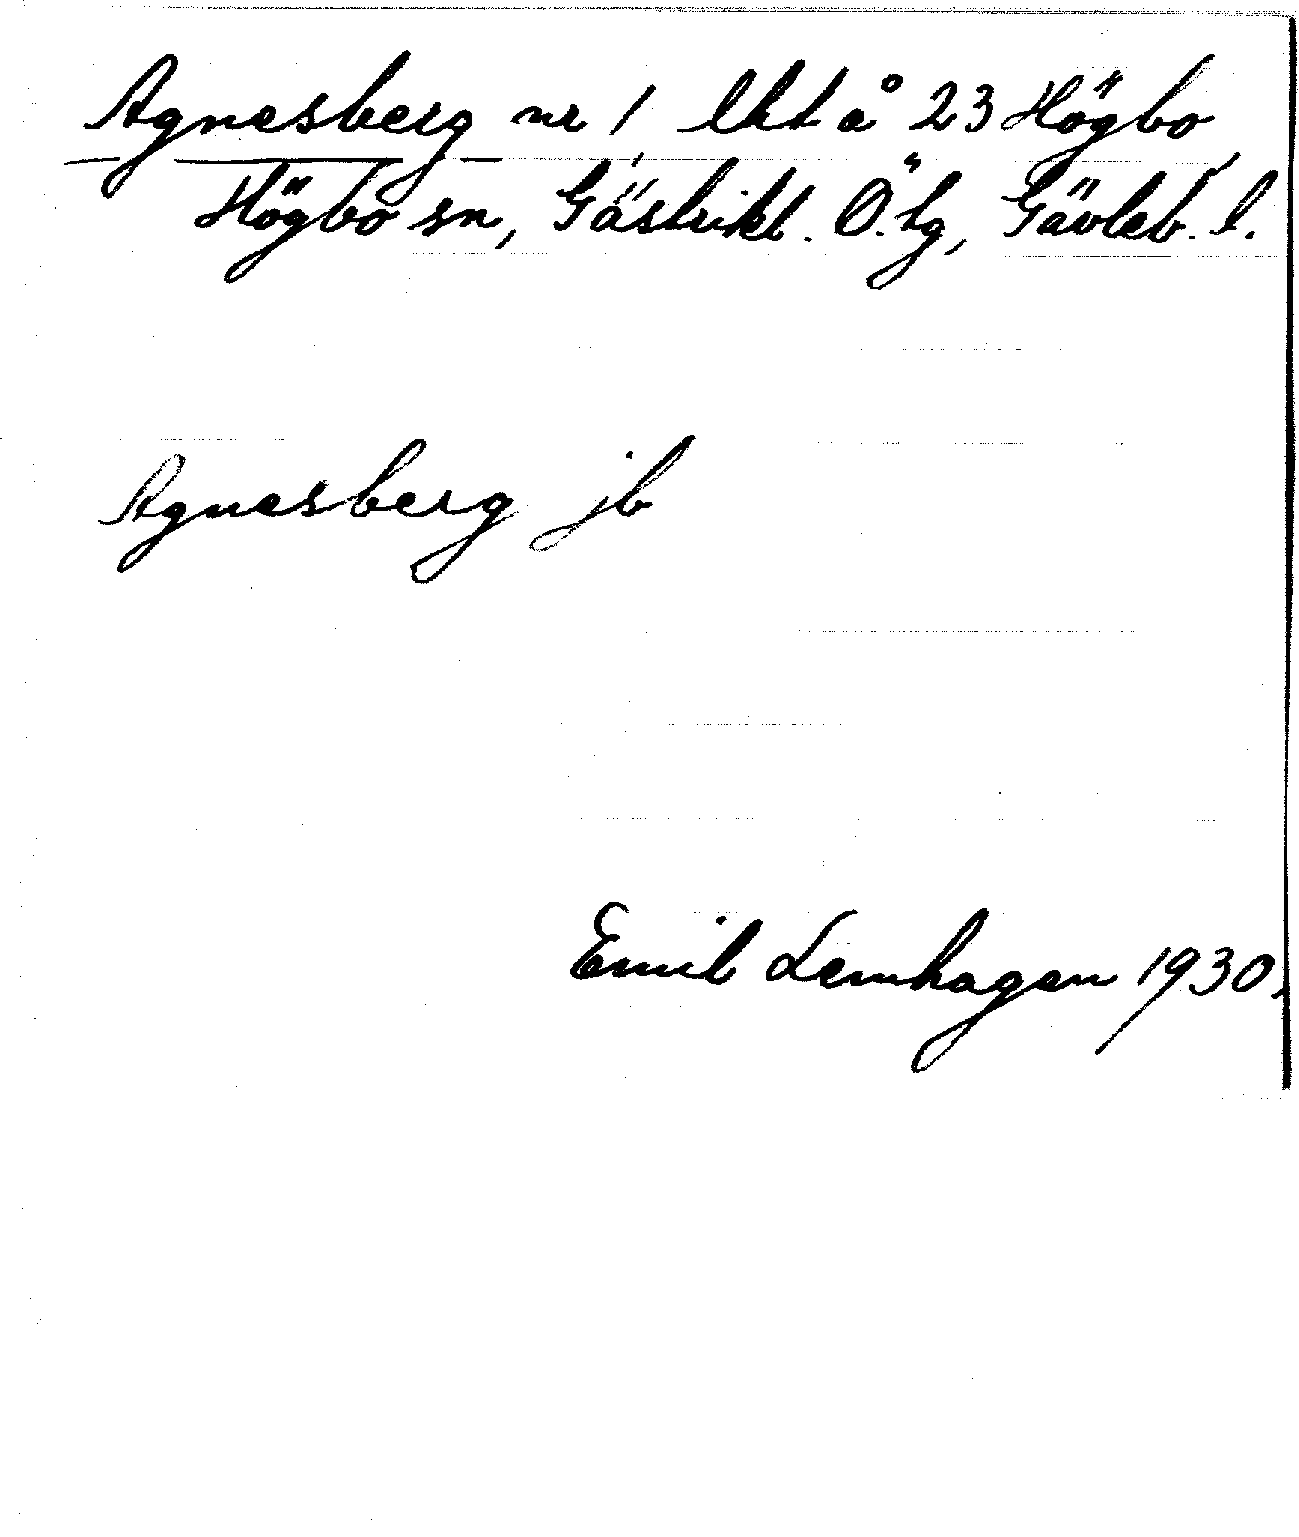 Agnesberg nr 1, lht å 23 Högbo,
Högbo sn, Gästrikl. Ö. tg, Gävleb. l.
Agnesberg jb
Emil Lemhagen 1930.